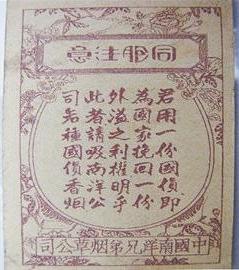 同胞注意
君用一份國貨即
為國家挽回一份
外溢之利權明乎
此者請吸南洋公
司先種國貨香烟
中國南洋兄弟烟草公司